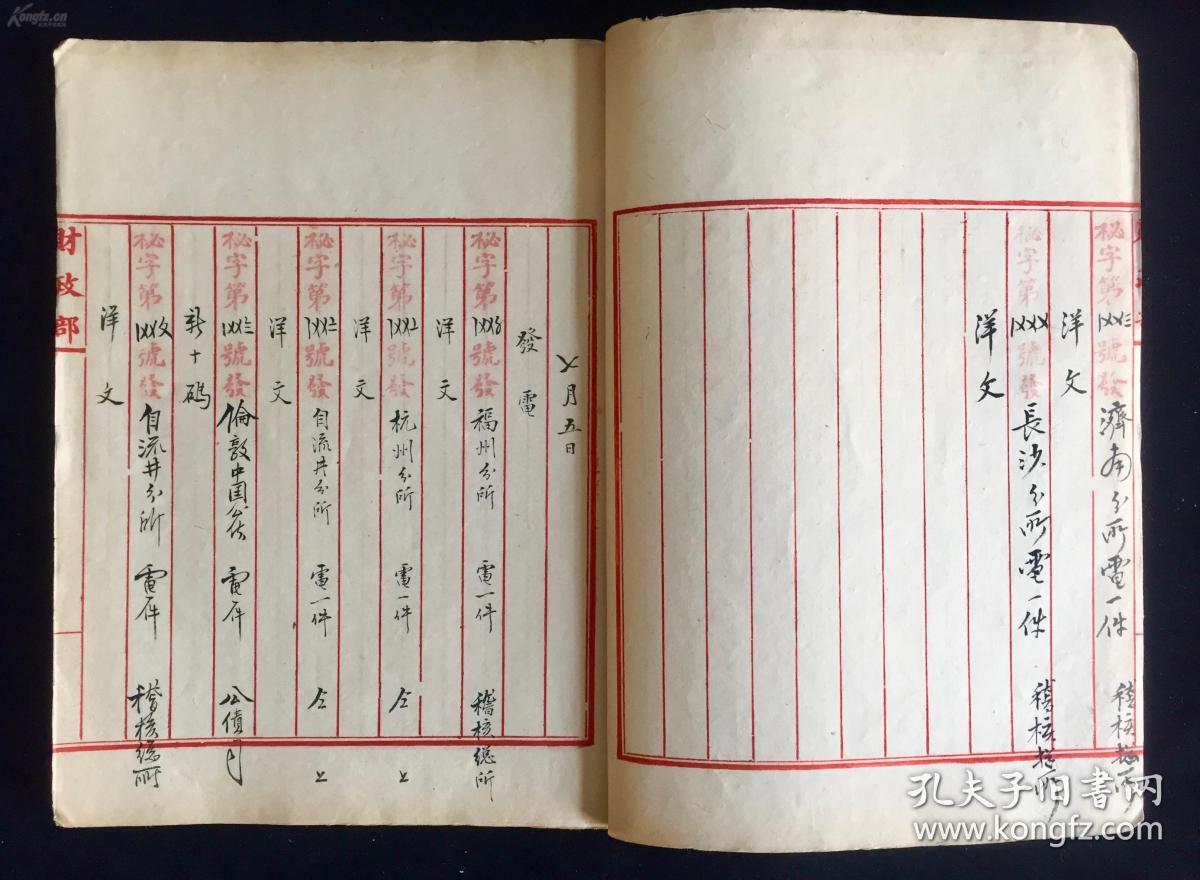 秘字第〡〤〤〣號發 濟南分所電一件 稽核總所
洋文
秘字第〡〤〤〤號發 長沙分所電一件 稽核總所
洋文
七月五日
發電
秘字第〡〤〤〥號發 福州分所 電一件 稽核總所
洋文
秘字第〡〤〤〦號發 杭州分所 電一件 仝上
洋文
秘字第〡〤〤〧號發 自流井分所 電一件 仝上
洋文
秘字第〡〤〤〨號發 倫敦中国公使 電一件 公債司
新十碼
秘字第〡〤〤〩號發 自流井分所 電一件 稽核總所
洋文
財政部
Kongfz.cn
孔夫子旧书网
www.kongfz.com